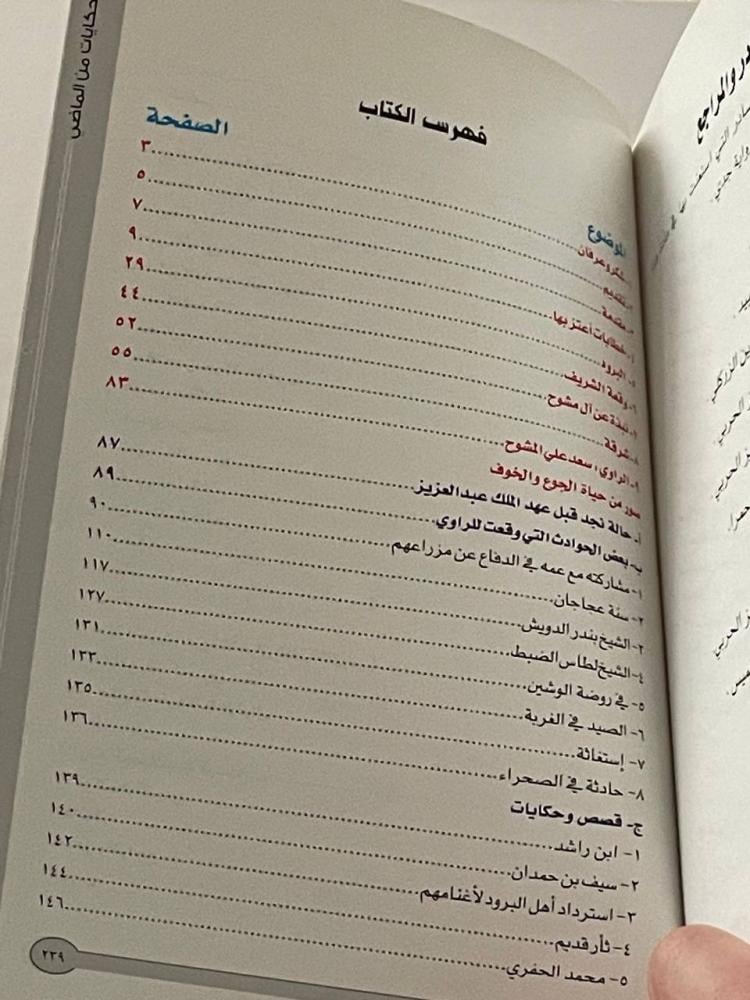 حكايات من الماضي
فهرست الكتاب
الموضوع الصفحة
شكر وعرفان ٣
تقديم ٥
مقدمة ٧
خطابات أعتز بها ٩
البرود ٢٩
٦- وقعة الشريف ٤٤
نبذة عن آل مشوح ٥٢
٨- شرقة ٥٥
٩- الراوي: سعد علي المشوح ٨٣
صور من حياة الجوع والخوف
أ- حالة نجد قبل عهد الملك عبدالعزيز ٨٧
ب- بعض الحوادث التي وقعت للراوي ٨٩
١- مشاركته مع عمه في الدفاع عن مزراعهم ٩٠
٢- سنة عجاجان ١١٠
٣- الشيخ بندر الدويش ١١٧
٤- الشيخ لطاس الضبط ١٢٧
٥- في روضة الوشين ١٣١
٦- الصيد في الغربة ١٣٣
٧- إستغاثة ١٣٥
٨- حادثة في الصحراء ١٣٦
ج- قصص وحكايات
١- ابن راشد ١٣٩
٢- سيف بن حمدان ١٤٠
٣- استرداد أهل البرود لأغنامهم ١٤٢
٤- ثأر قديم ١٤٤
٥- محمد الحفري ١٤٦
٢٣٩
والمراجع
التي استفدت
جدتي
الزركلي
الحربي
الحربي
الحربي